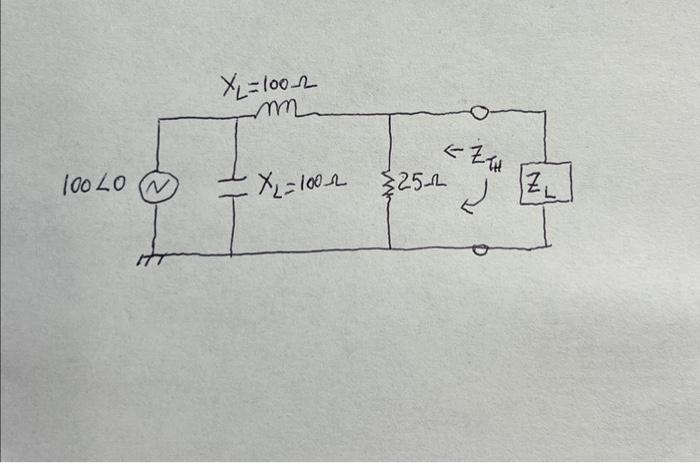 X_L=100Ω
100∠0
X_L=100Ω
25Ω
←Z_TH
Z_L